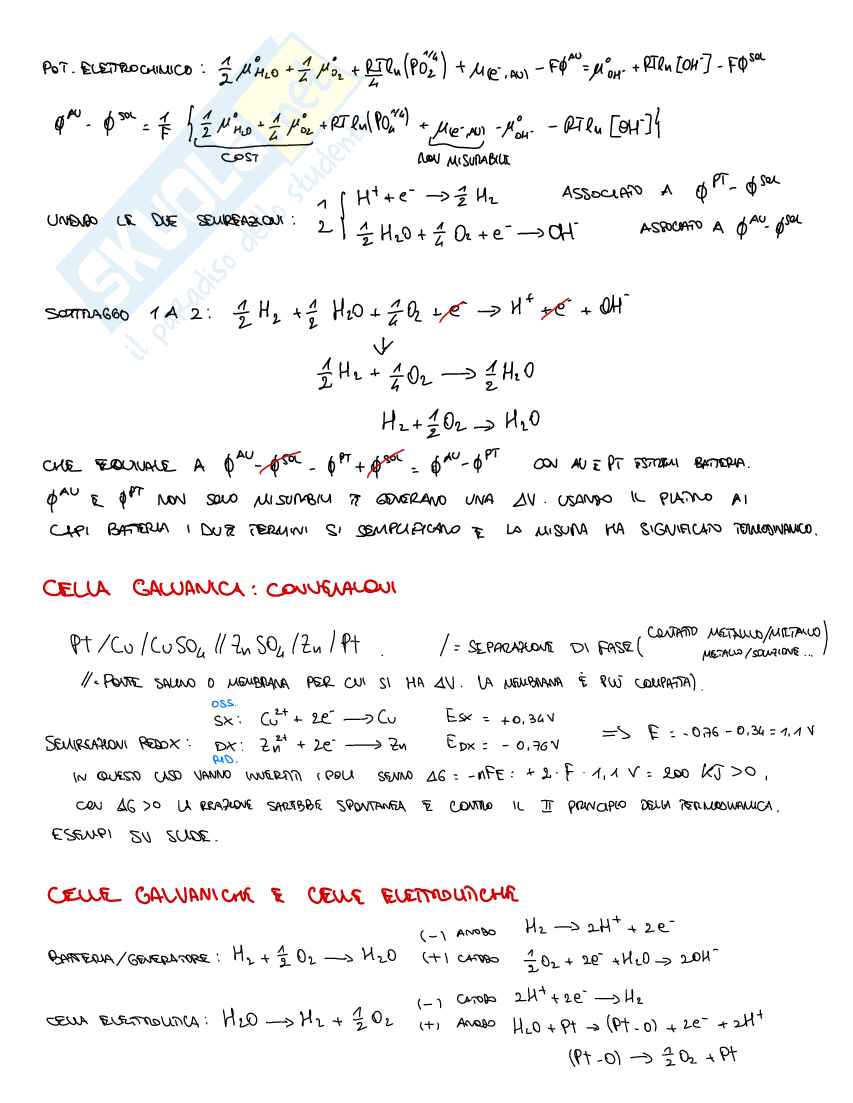 POT. ELETTROCHIMICO: 1/2 μ°H₂O + 1/4 μ°O₂ + RT/4 ln(PO₂^1/4) + μ(e⁻,AU) - Fϕ^AU = μ°OH⁻ + RTln[OH⁻] - Fϕ^SOL
ϕ^AU - ϕ^SOL = 1/F { 1/2 μ°H₂O + 1/4 μ°O₂ + RTln(PO₄^1/4) + μ(e⁻,AU) - μ°OH⁻ - RTln[OH⁻]}
COST NON MISURABILE
UNENDO LE DUE SEMIREAZIONI: 1 { H⁺ + e⁻ → 1/2 H₂ ASSOCIATO A ϕ^PT - ϕ^SOL
2 { 1/2 H₂O + 1/4 O₂ + e⁻ → OH⁻ ASSOCIATO A ϕ^AU - ϕ^SOL
SOTTRAGGO 1 A 2: 1/2 H₂ + 1/2 H₂O + 1/4 O₂ + e⁻ → H⁺ + e⁻ + OH⁻
↓
1/2 H₂ + 1/4 O₂ → 1/2 H₂O
H₂ + 1/2 O₂ → H₂O
CHE EQUIVALE A ϕ^AU - ϕ^SOL - ϕ^PT + ϕ^SOL = ϕ^AU - ϕ^PT CON AU E PT ESTREMI BATTERIA.
ϕ^AU E ϕ^PT NON SOLO MISURABILI E GENERANO UNA ΔV. USANDO IL PLATINO AI
CAPI BATTERIA I DUE TERMINI SI SEMPLIFICANO E LA MISURA HA SIGNIFICATO TERMODINAMICO.
CELLA GALVANICA: CONVENZIONI
Pt/Cu/CuSO₄//ZnSO₄/Zn/Pt. /= SEPARAZIONE DI FASE (CONTATTO METALLO/METALLO
METALLO/SOLUZIONE...)
//= PONTE SALINO O MEMBRANA PER CUI SI HA ΔV. LA MEMBRANA È PIÙ COMPATTA).
OSS.
SX: Cu²⁺ + 2e⁻ → Cu E_SX = +0,34V
SEMIREAZIONI REDOX: DX: Zn²⁺ + 2e⁻ → Zn E_DX = -0,76V ⇒ E = -0,76 - 0,34 = 1,1 V
RID.
IN QUESTO CASO VANNO INVERTITI I POLI SENNÒ ΔG = -nFE: + 2·F·1,1 V = 200 KJ > 0,
CON ΔG>0 LA REAZIONE SAREBBE SPONTANEA E CONTRO IL II PRINCIPIO DELLA TERMODINAMICA.
ESEMPI SU SLIDE.
CELLE GALVANICHE E CELLE ELETTROLITICHE
BATTERIA/GENERATORE: H₂ + 1/2 O₂ → H₂O (-) ANODO H₂ → 2H⁺ + 2e⁻
(+) CATODO 1/2 O₂ + 2e⁻ + H₂O → 2OH⁻
CELLA ELETTROLITICA: H₂O → H₂ + 1/2 O₂ (-) CATODO 2H⁺ + 2e⁻ → H₂
(+) ANODO H₂O + Pt → (Pt-O) + 2e⁻ + 2H⁺
(Pt-O) → 1/2 O₂ + Pt
SKUOLA.net
il paradiso dello studente